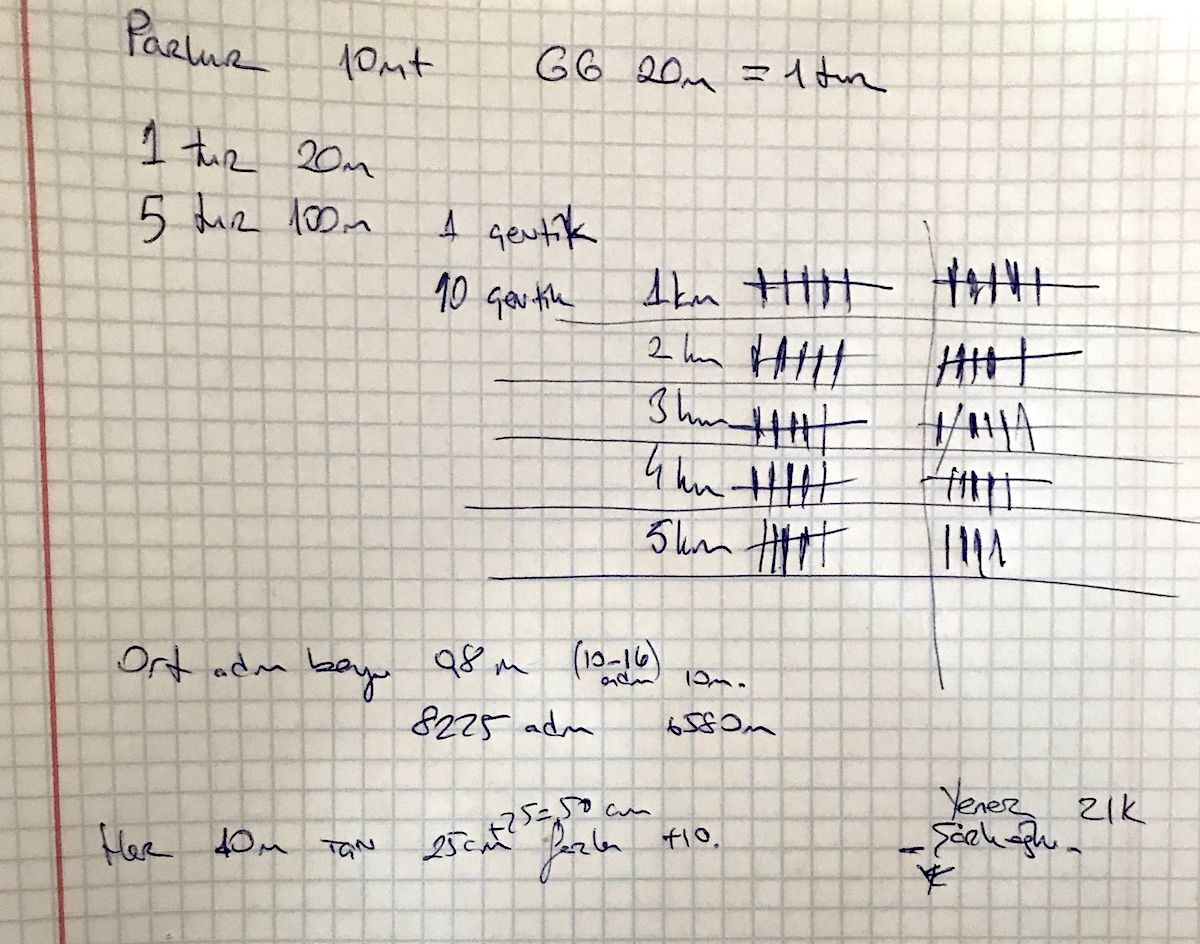 Parkur 10mt GG 20m = 1 tur
1 tur 20m
5 tur 100m 1 çentik
10 çentik 1km
2 km
3 km
4 km
5 km
Ort adım boyu 0.8 m (10-16) adım 10m.
8225 adım 6580m
Her 10m 25cm +25=50 cm fazla +10.
Yener 21K